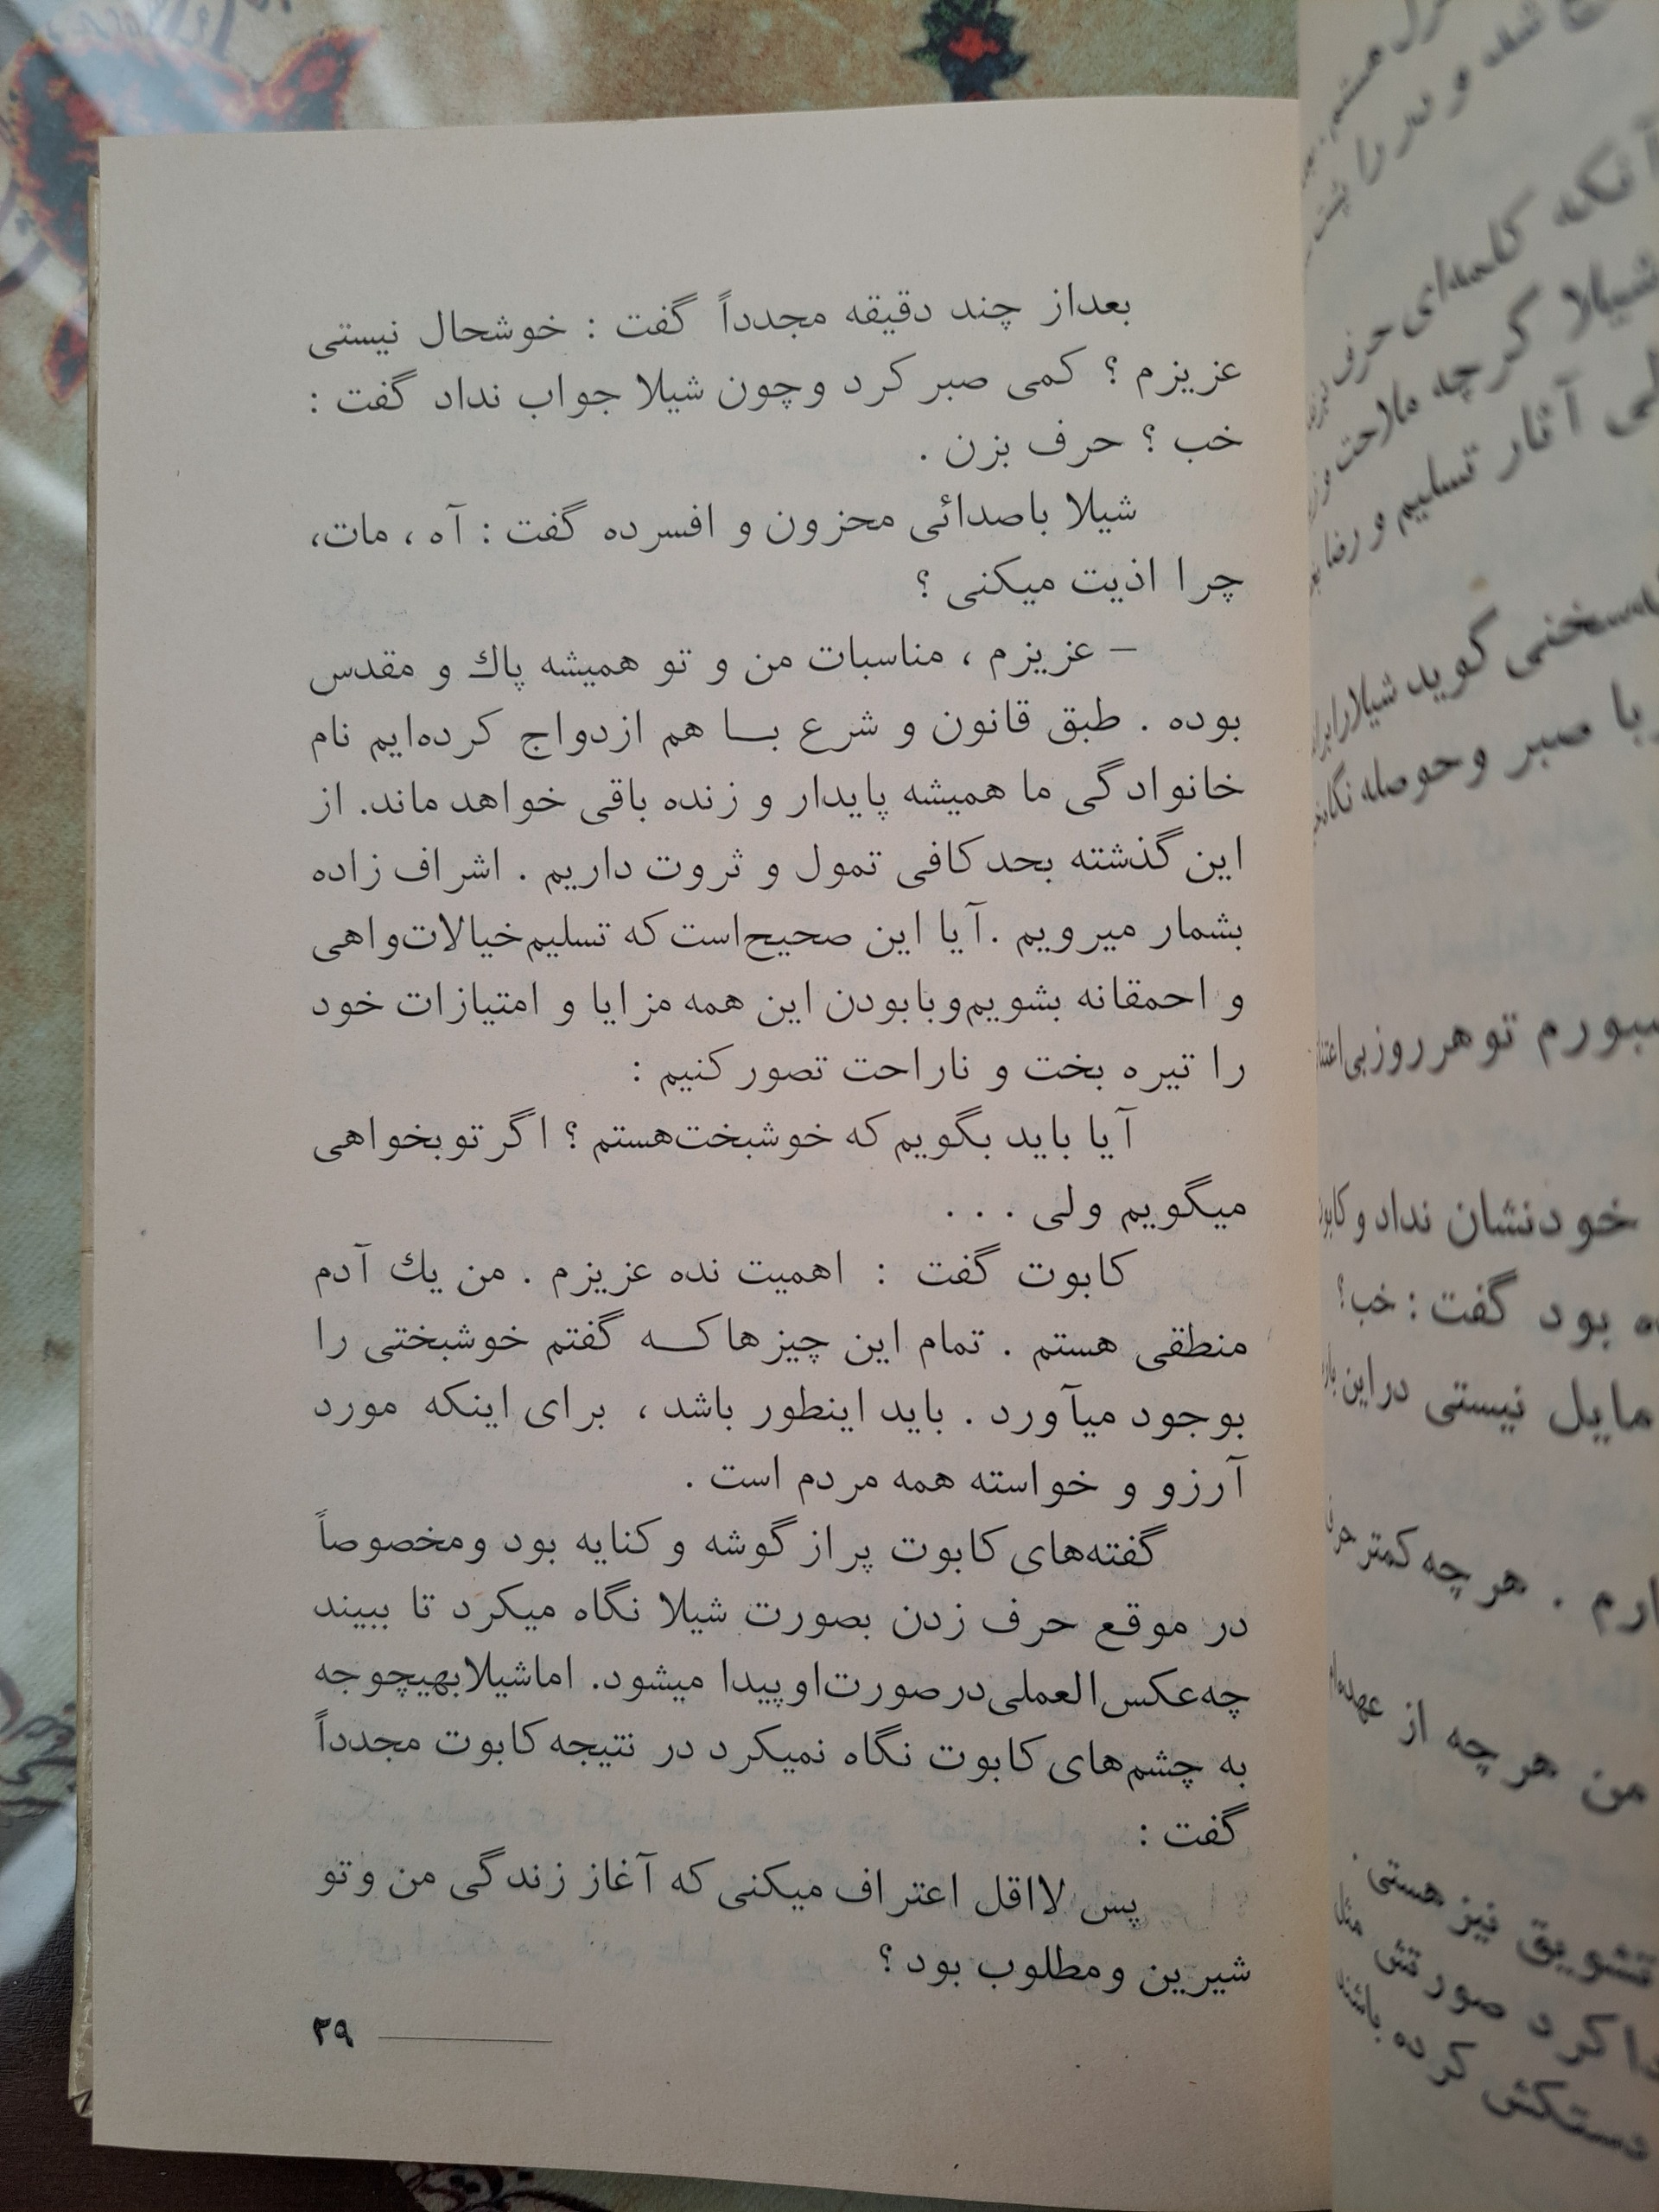 بعداز چند دقیقه مجدداً گفت : خوشحال نیستی
عزیزم ؟ کمی صبر کرد وچون شیلا جواب نداد گفت :
خب ؟ حرف بزن .
شیلا باصدائی محزون و افسرده گفت : آه ، مات،
چرا اذیت میکنی ؟
– عزیزم ، مناسبات من و تو همیشه پاك و مقدس
بوده . طبق قانون و شرع بــا هم ازدواج کرده‌ایم نام
خانوادگی ما همیشه پایدار و زنده باقی خواهد ماند. از
این گذشته بحد کافی تمول و ثروت داریم . اشراف زاده
بشمار میرویم .آیا این صحیح‌است که تسلیم‌خیالات‌واهی
و احمقانه بشویم‌وبابودن این همه مزایا و امتیازات خود
را تیره بخت و ناراحت تصور کنیم :
آیا باید بگویم که خوشبخت‌هستم ؟ اگر توبخواهی
میگویم ولی . . .
کابوت گفت : اهمیت نده عزیزم . من یك آدم
منطقی هستم . تمام این چیزها کــه گفتم خوشبختی را
بوجود میآورد . باید اینطور باشد ، برای اینکه مورد
آرزو و خواسته همه مردم است .
گفته‌های کابوت پر از گوشه و کنایه بود ومخصوصاً
در موقع حرف زدن بصورت شیلا نگاه میکرد تا ببیند
چه‌عکس‌العملی‌در‌صورت‌او پیدا میشود. اماشیلابهیچوجه
به چشم‌های کابوت نگاه نمیکرد در نتیجه کابوت مجدداً
گفت :
پس لااقل اعتراف میکنی که آغاز زندگی من و تو
شیرین ومطلوب بود ؟
۲۹
آنکه کلمه‌ای حرفی
شیلا گرچه ملاحت
آثار تسلیم و رضا
سخنی گوید شیلا را
با صبر وحوصله
تو هر روز بی
خودنشان نداد و
بود گفت : خب ؟
مایل نیستی در این
. هر چه کمتر
من هر چه از
تشویق نیز هستی .
کرد صورتش مثل
کرده باشند